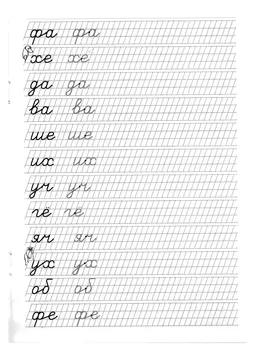 фа фа
хе хе
да да
ва ва
ше ше
их их
уч уч
ге ге
яч яч
ух ух
об об
фе фе